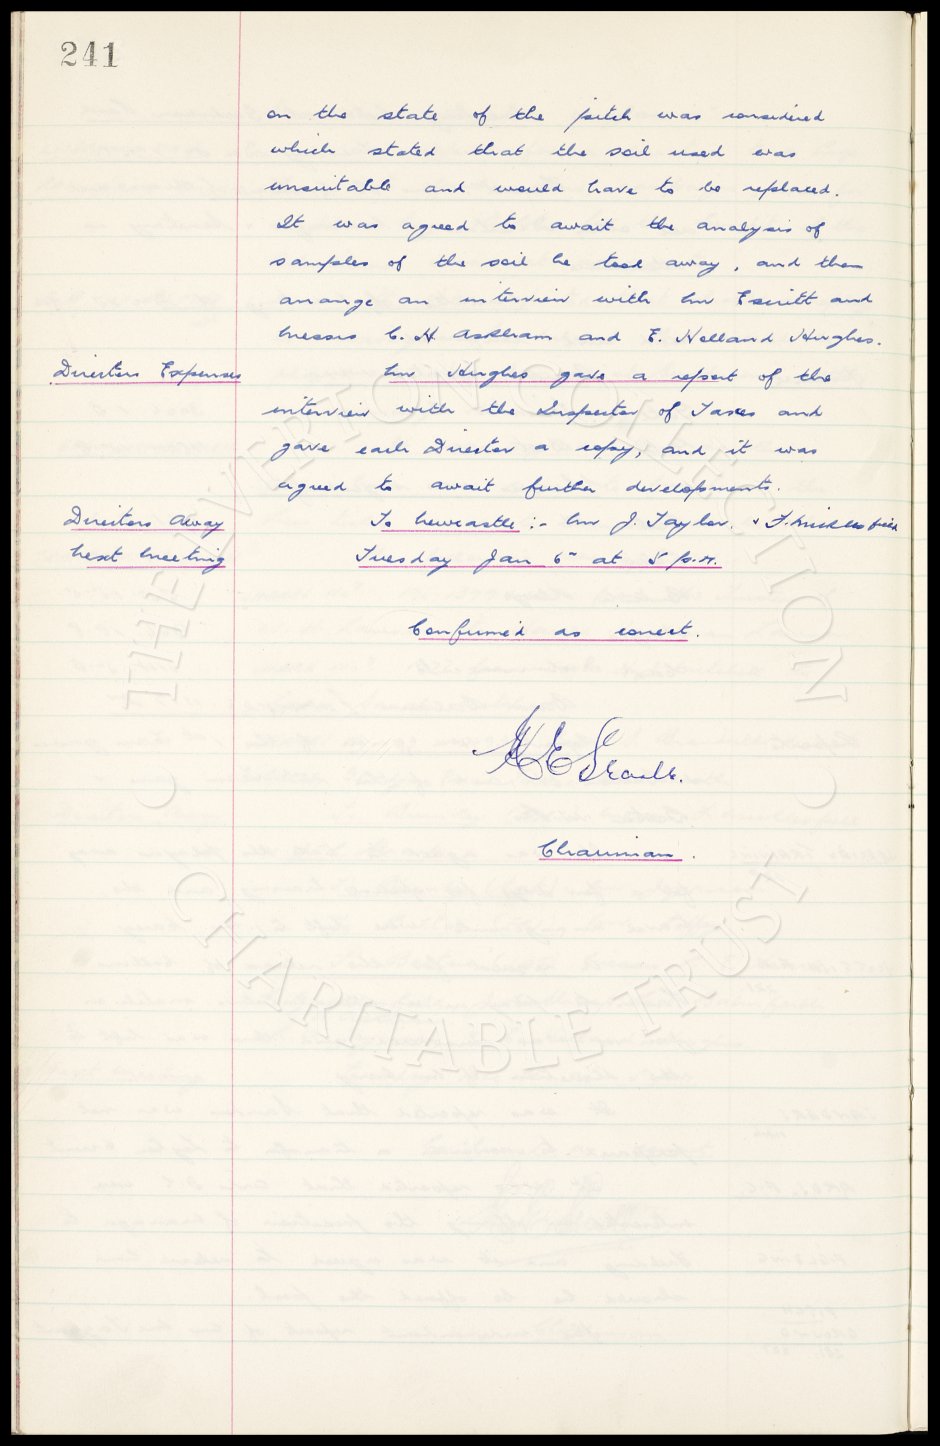 241
on the state of the pitch was considered
which stated that the soil used was
unsuitable and would have to be replaced.
It was agreed to await the analysis of
samples of the soil he took away, and then
arrange an interview with Mr Escritt and
Messrs C. H. Askham and E. Holland Hughes.
Directors Expenses Mr Hughes gave a report of the
interview with the Inspector of Taxes and
gave each Director a copy, and it was
agreed to await further developments.
Directors Away To Newcastle :- Mr J. Taylor. & F. Micklesfield
Next Meeting Tuesday Jan 6th at 5 p.m.
Confirmed as correct.
Chairman.
THE EVERTON COLLECTION
CHARITABLE TRUST